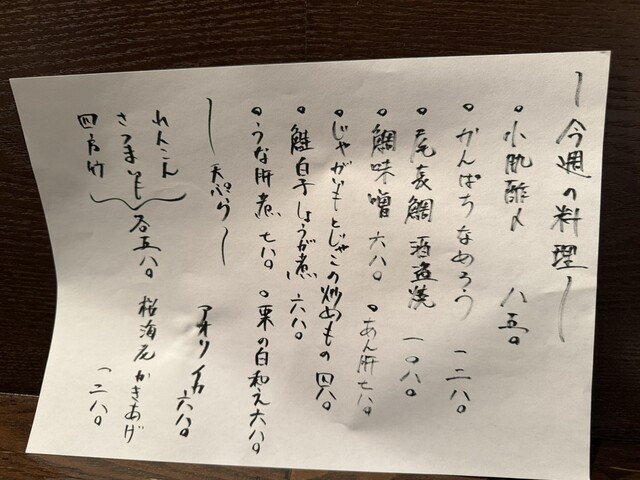 ～今週の料理～
。小肌酢〆 八五〇
。かんぱちなめろう 一二八〇
。尾長鯛 酒盗焼 一〇八〇
。鯛味噌 六八〇 。あん肝 七八〇
。じゃがいもとじゃこの炒めもの 四八〇
。鮭白子しょうが煮 六八〇
。うな肝煮 七八〇 。栗の白和え 六八〇
～天ぷら～
アオリイカ 六八〇
れんこん
さつまいも
四方竹
各五八〇
桜海老かきあげ
一二八〇